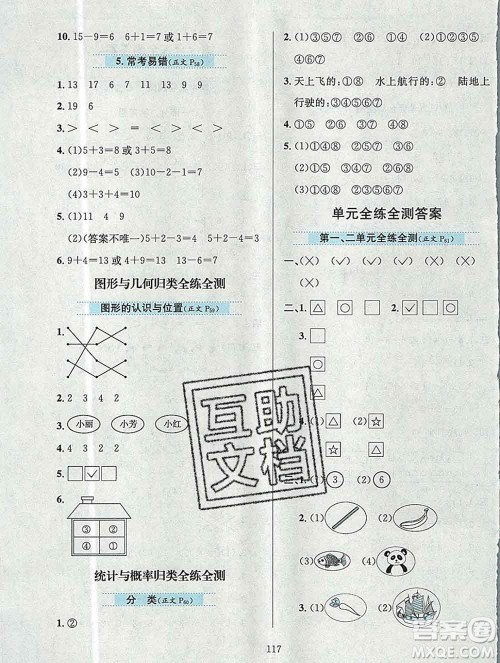 10. 15－9＝6　6＋1＝7＝或1＋6＝7
5. 常考易错(正文 P58)
1. 13　17　4　6　7　11　18
2. 19　6
3. ＞　＜　＞　＝　＜　＞
4. (1)5＋3＝8　13－6＝7
(2)9－4＝5　(3)10－2－1＝7
(4)8－1＋3＝10
5. (1)11　4　9
(2)(答案不唯一)5－1＝4　5＋4＝9
6. 9＋4＝13　17－4＝13或8＋5＝13
图形与几何归类全练全测
图形的认识与位置(正文 P59)
1.
2. 2　3　4　2
3. 小丽　小芳　小红
4. 3　3　2　2
5. □ ✓ □
6.
④ ②
③ ①
统计与概率归类全练全测
分　类(正文 P60)
1. ②
2. (1)③⑤⑦　①②④⑥⑧
(2)①③⑤⑥⑦　②④⑧
3. 天上飞的:①⑧　水上航行的:②　陆地上
行驶的:③④⑤⑥⑦
4. ①⑤⑥　②③⑦　①④⑧
5. (1)①④⑦⑧　②③⑤⑥
(2)①③⑥⑦　②④⑤⑧
单元全练全测答案
第一、二单元全练全测(正文 P61)
一、(×)　(✓)　(✓)　(✓)　(×)
(×)
二、1. △ □ ○
2. △
3. □
○ □ △
4. (1)□☆　(2)△☆
5. □ △ ☆ ○
三、1. (1)③　(2)⑥
2. (1)　(2)
(3)　(4)
3. (1)　(2)
互助
文档
117
答案圈
MXQE.COM